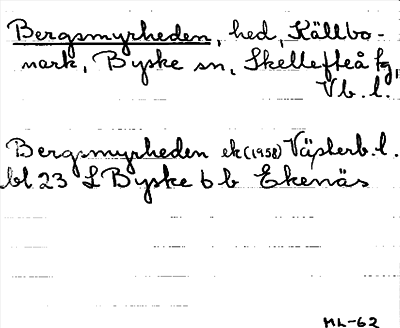 Bergsmyrheden, hed, Källbo-
mark, Byske sn, Skellefteå tg,
Vb. l.
Bergsmyrheden ek (1958) Västerb. l.
bl 23 L Byske 6 b Ekenäs
ML-62